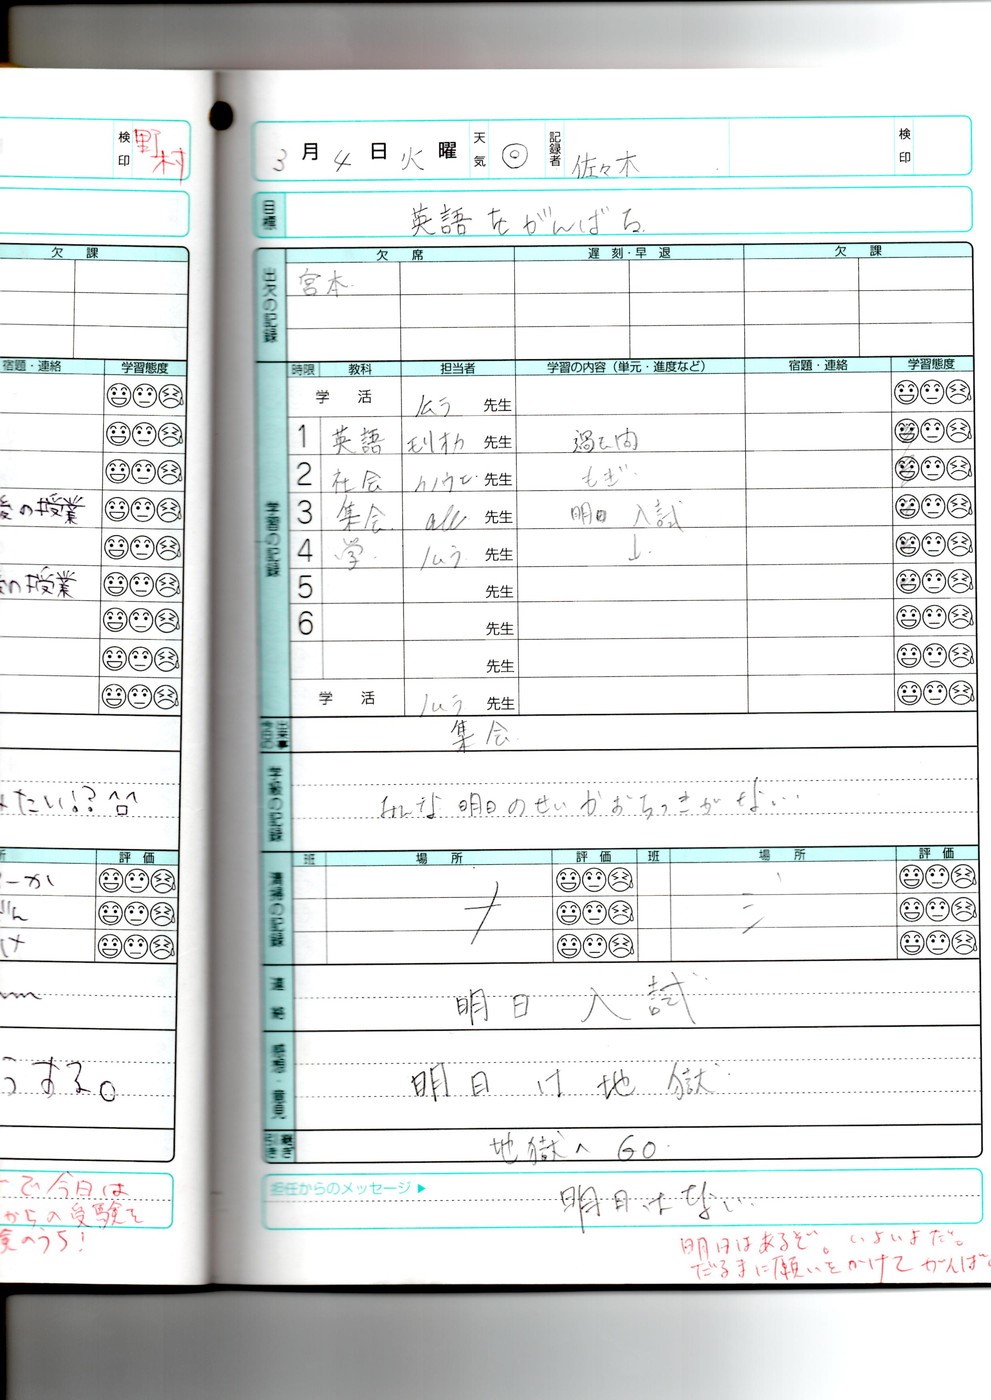 検印 野村
欠課
宿題・連絡 学習態度
後の授業
の授業
みたい!? ^□^
評価
うする。
で今日は
からの受験を
のうち!
3月4日火曜 天気 ◎ 記録者 佐々木 検印
目標 英語をがんばる
出欠の記録 欠席 遅刻・早退 欠課
宮本
学習の記録 時限 教科 担当者 学習の内容(単元・進度など) 宿題・連絡 学習態度
学活 先生
1 英語 先生
2 社会 先生 もぎ
3 集会 all 先生 明日入試
4 学 先生 ↓
5 先生
6 先生
先生
学活 先生
今日の出来事 集会
学級の記録 みんな明日のせいかおちつきがない…
清掃の記録 班 場所 評価 班 場所 評価
ナシ
連絡 明日入試
感想・意見 明日は地獄
引き継ぎ 地獄へGO
担任からのメッセージ▶
明日はない…
明日はあるぞ。いよいよだ。
だるまに願いをかけてがんば